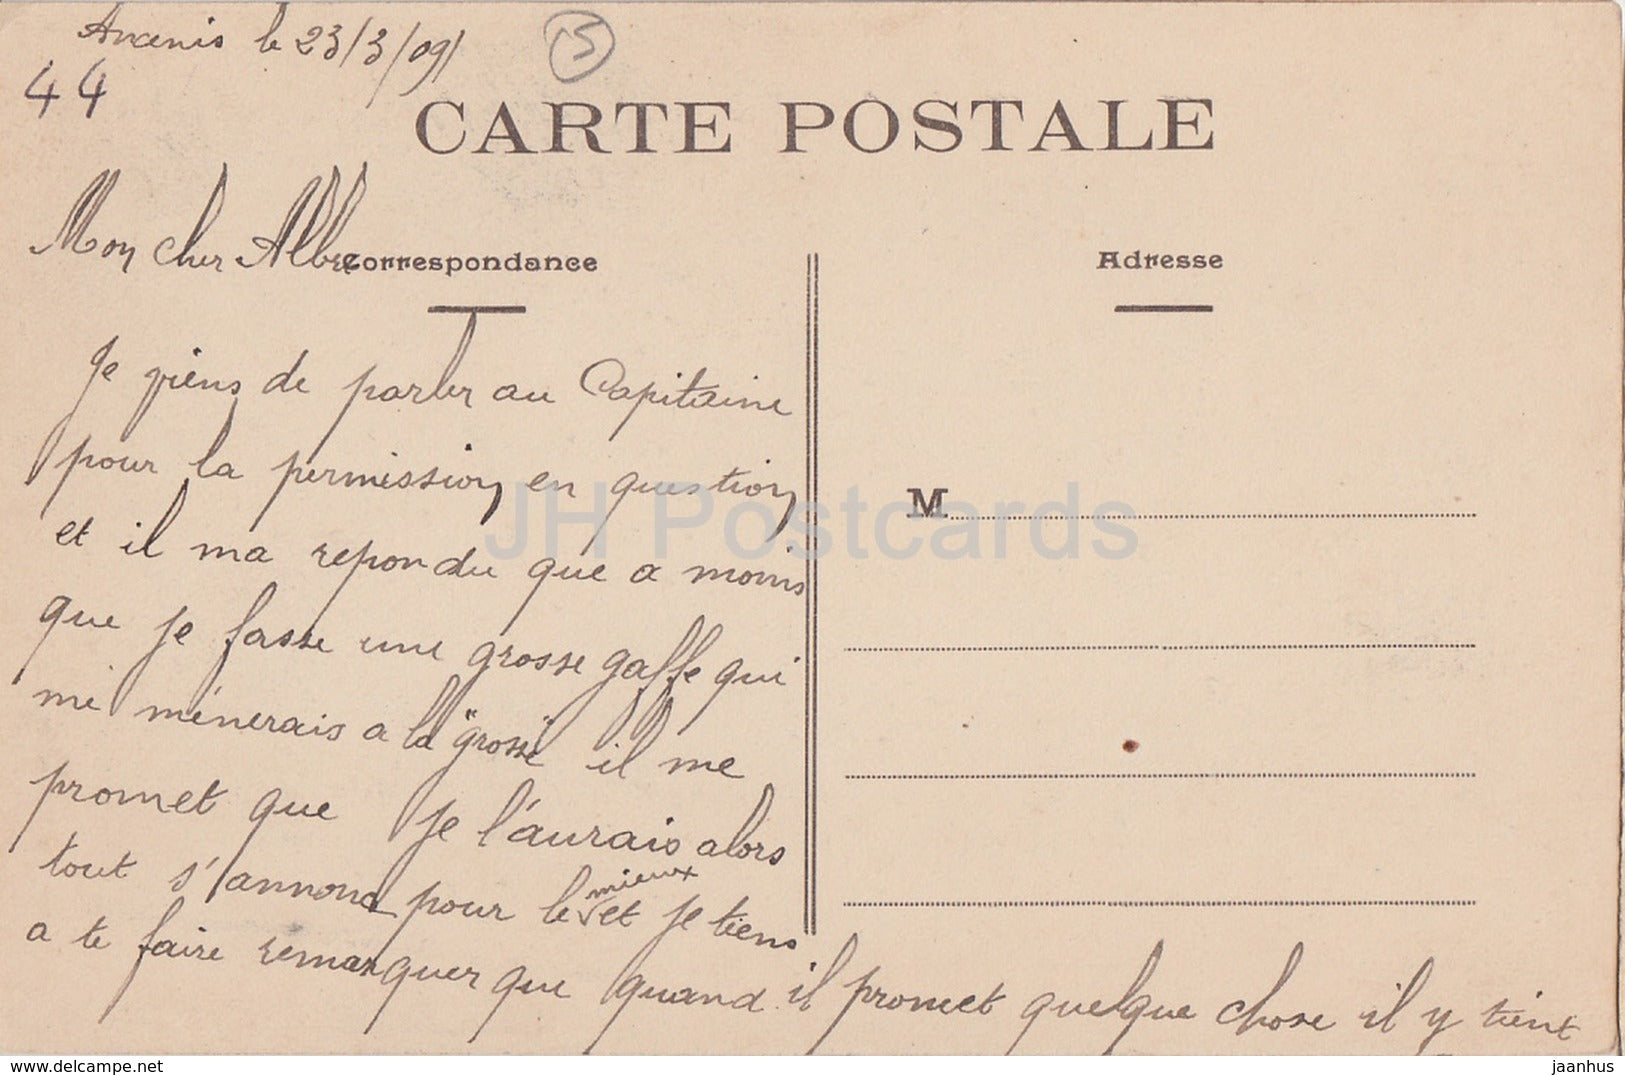 Ancenis le 23/3/09
15
44
CARTE POSTALE
Mon cher Albre
Correspondance
Adresse
Je viens de parler au Capitaine
pour la permission en question
et il ma repondu que a moins
que je fasse une grosse gaffe qui
me mènerais a la "grosse" il me
promet que je l'aurais alors
tout s'annonce pour le mieux et je tiens
a te faire remarquer que quand il promet quelque chose il y tient
M
JH Postcards
www.delcampe.net
jaanhus